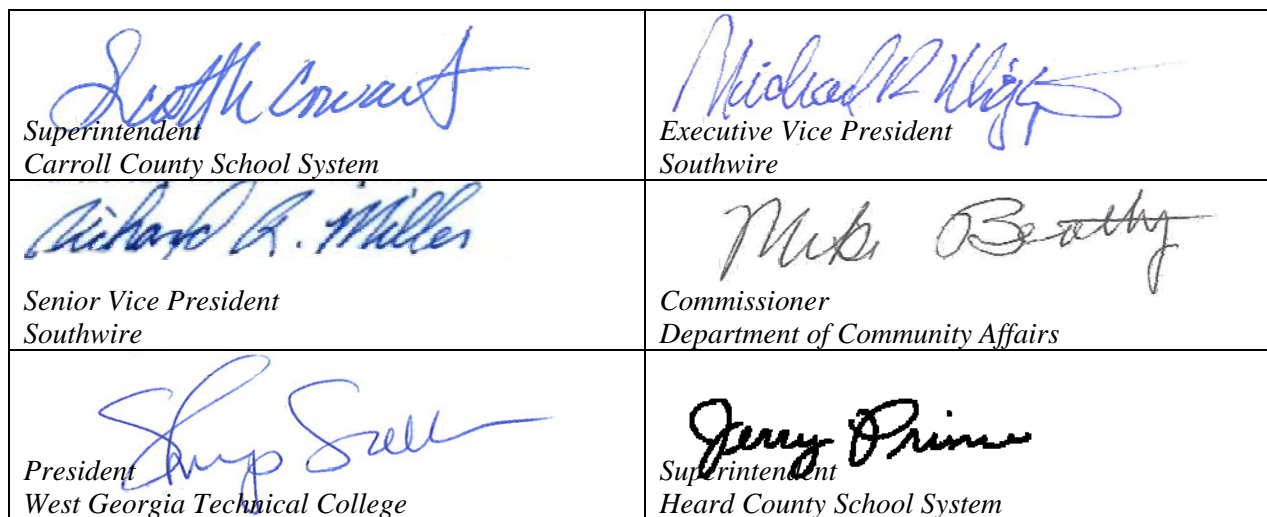 Scott Cowart
Superintendent
Carroll County School System
Michael R Wiggins
Executive Vice President
Southwire
Richard R. Miller
Senior Vice President
Southwire
Mike Beatty
Commissioner
Department of Community Affairs
President
West Georgia Technical College
Jerry Prince
Superintendent
Heard County School System